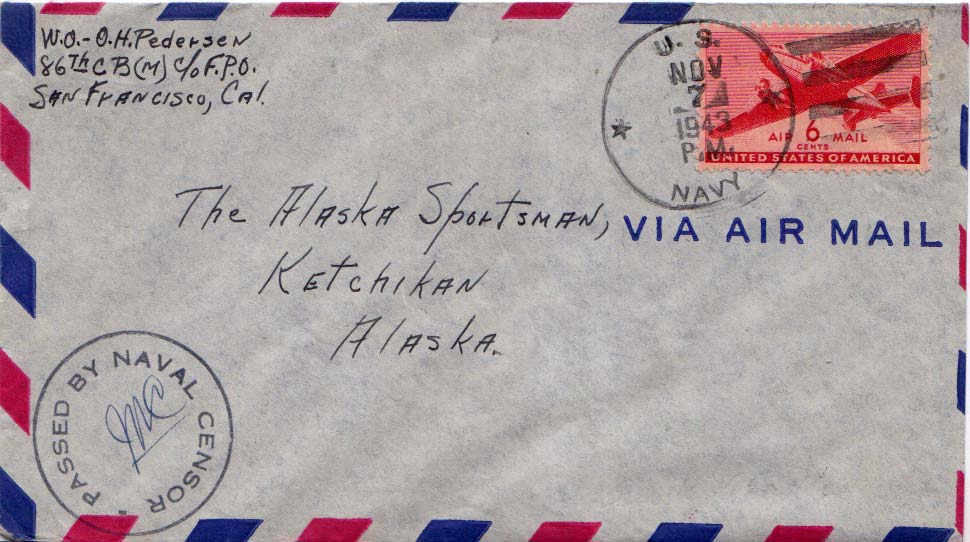 W.O.-O.H.Pedersen
86TH CB(M) C/o F.P.O.
San Francisco, Cal.
U. S.
NOV
7
1943
P.M.
NAVY
AIR 6 MAIL
CENTS
UNITED STATES OF AMERICA
The Alaska Sportsman,
VIA AIR MAIL
Ketchikan
Alaska.
PASSED BY NAVAL CENSOR
MC